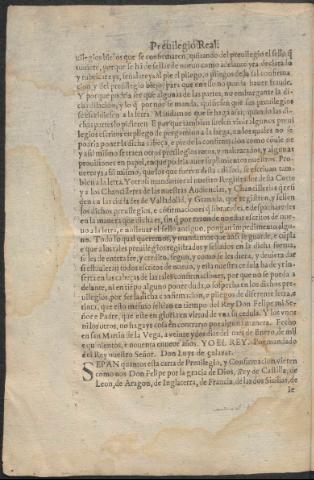 Preuilegio Real.
uilegios viejos que se confirmaren, quitando del preuilegio el sello q̃
tuuiere, porque se ha de sellar de nueuo como adelante yra declarado
y rubricareys, señalareys al pie el pliego, o pliegos de la tal confirma
cion, y del preuilegio viejo, para que en ello no pueda hauer fraude.
Y porque podria ser que algunas de las partes, no embargante la di-
cha dicion, y lo q̃ por nos se manda, quisiessen que sus preuilegios
se escriuiessen a la letra. Mandamos que se haga assi, quando las di-
chas partes lo pidieren Y porque tambien suelen venir algunos preui
legios escritos en pliego de pergamino a la larga, en los quales no se
podria poner la dicha cabeça, e pie de la confirmacion como conuiene
y assi mismo se traen otros preuilegios rotos, y maltratados, y algunas
prouisiones en papel, en que podria auer
uerto y assi mismo, que los que fueren desta calidad, se escriuan tam-
bien a la letra. Y otrosi mandamos al nuestro Registrador de la Corte
y a los Chancilleres de las nuestras Audiencias, y Chancillerias q̃ resi
den en las ciudades de Valladolid, y Granada, que registren, y sellen
los dichos preuilegios, e confirmaciones q̃ libraredes, e despacharedes
en la manera que dicha es, sin q̃ por razon de no estar escritos de nue-
uo a la letra, e no lleuar el sello antiguo, pongan impedimento algu-
no. Todo lo qual queremos, y mandamos que assi se guarde, e cũpla
e que a los tales preuilegios registrados y sellados en la dicha forma,
se les de entera fee, y credito, segun, y como se les diera, y deuiera dar
si estuuieran todos escritos de nueuo, y esta nuestra cedula haueys de inser-
ta en las cabeças de las tales confirmaciones, por que no se pueda a-
delante, ni en tiẽpo alguno poner duda, o sospecha en los dichos pre-
uilegios, por ser la dicha confirmacion, e pliegos de diferente letra, e
tinta, que esto mismo se hizo en tiempo del Rey Don Felipe mi Se-
ñor e Padre, que este en gloria en virtud de vna su cedula. Y los vnos
ni los otros, no hagays cosa en contrario por alguna manera. Fecho
en san Martin de la Vega, a veinte y dos dias del mes de Enero, de mil
e quinientos, e nouenta e nueue años. YO EL REY. Por mandado
del Rey nuestro Señor. Don Luys de salazar.
SEPAN quantos esta carta de Preuilegio, y Confirmacion vieren
como nos Don Felipe por la gracia de Dios, Rey de Castilla, de
Leon, de Aragon, de Inglaterra, de Francia, de las dos Sicilias, de
Ie